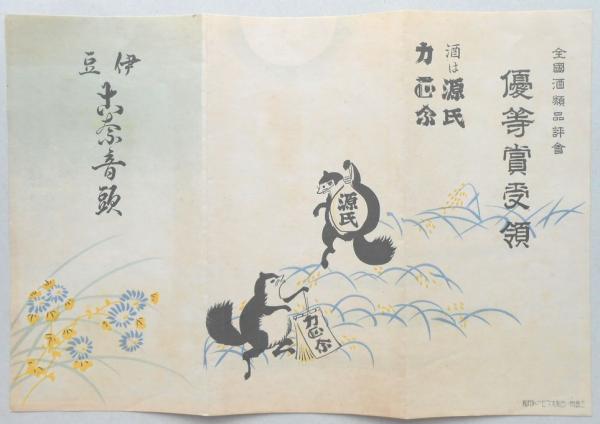 全國酒類品評會
優等賞受領
酒は源氏
力正宗
源氏
力正宗
伊豆
古奈音頭